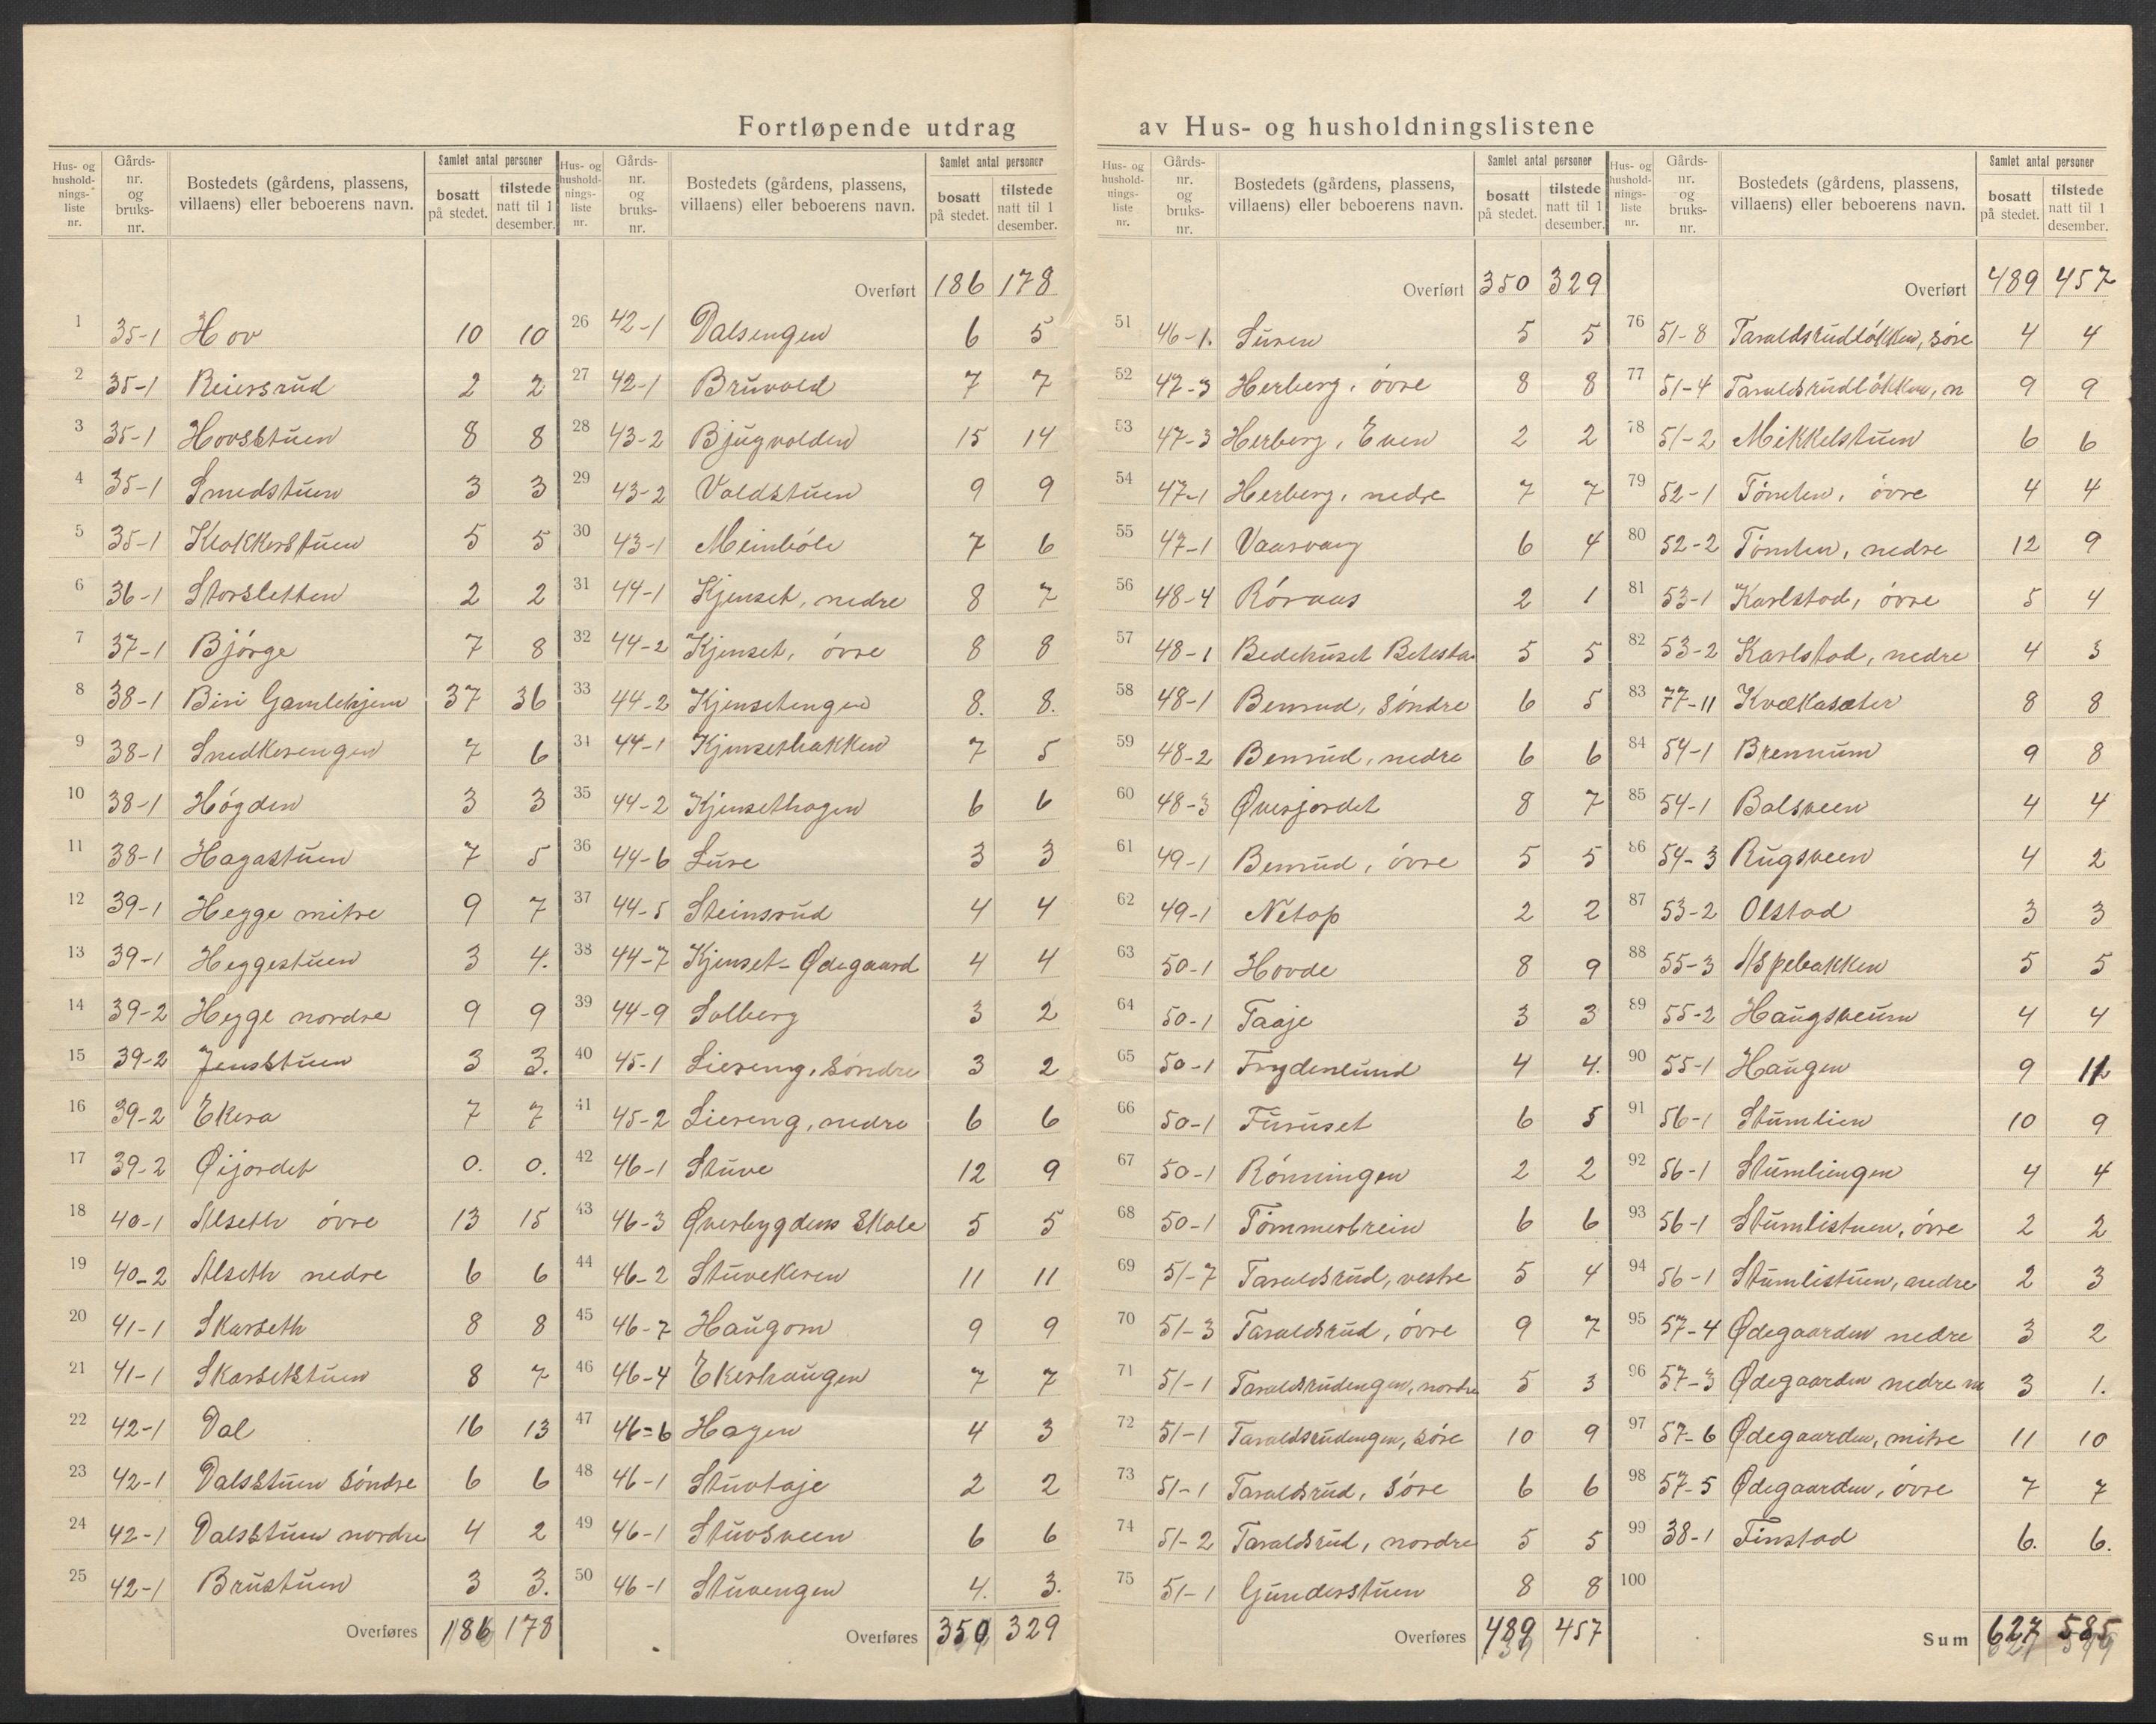 Fortløpende utdrag av Hus- og husholdningslistene
Hus- og hushold-nings-liste nr. | Gårds-nr. og bruks-nr. | Bostedets (gårdens, plassens, villaens) eller beboerens navn. | Samlet antal personer bosatt på stedet. | tilstede natt til 1 desember.
1 35-1 Hov 10 10
2 35-1 Reiersrud 2 2
3 35-1 Hovsstuen 8 8
4 35-1 Smedstuen 3 3
5 35-1 Klokkerstuen 5 5
6 36-1 Storsletten 2 2
7 37-1 Bjørge 7 8
8 38-1 Biri Gamlehjem 37 36
9 38-1 Snedkerengen 7 6
10 38-1 Høgden 3 3
11 38-1 Hagastuen 7 5
12 39-1 Hegge mitre 9 7
13 39-1 Heggestuen 3 4.
14 39-2 Hegge nordre 9 9
15 39-2 Jensstuen 3 3.
16 39-2 Ekera 7 7
17 39-2 Øijordet 0. 0.
18 40-1 Alseth øvre 13 15
19 40-2 Alseth nedre 6 6
20 41-1 Skarseth 8 8
21 41-1 Skarsetstuen 8 7
22 42-1 Dal 16 13
23 42-1 Dalsstuen søndre 6 6
24 42-1 Dalsstuen nordre 4 2
25 42-1 Brustuen 3 3.
Overføres 186 178
Hus- og hushold-nings-liste nr. | Gårds-nr. og bruks-nr. | Bostedets (gårdens, plassens, villaens) eller beboerens navn. | Samlet antal personer bosatt på stedet. | tilstede natt til 1 desember.
Overført 186 178
26 42-1 Dalsengen 6 5
27 42-1 Bruvold 7 7
28 43-2 Bjugvolden 15 14
29 43-2 Voldstuen 9 9
30 43-1 Meinhøle 7 6
31 44-1 Kjenset, nedre 8 7
32 44-2 Kjenset, øvre 8 8
33 44-2 Kjensetengen 8. 8.
34 44-1 Kjensetbakken 7 5
35 44-2 Kjensethagen 6 6
36 44-6 Lure 3 3
37 44-5 Steinsrud 4 4
38 44-7 Kjenset-Ødegaard 4 4
39 44-9 Solberg 3 2
40 45-1 Liereng, søndre 3 2
41 45-2 Liereng, nedre 6 6
42 46-1 Stuve 12 9
43 46-3 Øverbygdens Skole 5 5
44 46-2 Stuvekeren 11 11
45 46-7 Haugom 9 9
46 46-4 Ekerhaugen 7 7
47 46-6 Hagen 4 3
48 46-1 Stuvtaje 2 2
49 46-1 Stuvsveen 6 6
50 46-1 Stuvengen 4. 3.
Overføres 350 329
Hus- og hushold-nings-liste nr. | Gårds-nr. og bruks-nr. | Bostedets (gårdens, plassens, villaens) eller beboerens navn. | Samlet antal personer bosatt på stedet. | tilstede natt til 1 desember.
Overført 350 329
51 46-1. Luren 5 5
52 47-3 Herberg, øvre 8 8
53 47-3 Herberg, Even 2 2
54 47-1 Herberg, nedre 7 7
55 47-1 Vaarvang 6 4
56 48-4 Røraas 2 1
57 48-1 Bedehuset Betesta. 5 5
58 48-1 Benrud, søndre 6 5
59 48-2 Benrud, nedre 6 6
60 48-3 Øverjordet 8 7
61 49-1 Benrud, øvre 5 5
62 49-1 Netop 2 2
63 50-1 Hovde 8 9
64 50-1 Taaje 3 3
65 50-1 Frydenlund 4 4.
66 50-1 Furuset 6 5
67 50-1 Rønningen 2 2
68 50-1 Tømmerbrein 6 6
69 51-7 Taraldsrud, vestre 5 4
70 51-3 Taraldsrud, øvre 9 7
71 51-1 Taraldsrudengen, nordre 5 3
72 51-1 Taraldsrudengen, søre 10 9
73 51-1 Taraldsrud, søre 6 6
74 51-2 Taraldsrud, nordre 5 5
75 51-1 Gundersstuen 8 8
Overføres 489 457
Hus- og hushold-nings-liste nr. | Gårds-nr. og bruks-nr. | Bostedets (gårdens, plassens, villaens) eller beboerens navn. | Samlet antal personer bosatt på stedet. | tilstede natt til 1 desember.
Overført 489 457
76 51-8 Taraldsrudløkken, søre 4 4
77 51-4 Taraldsrudløkken, n 9 9
78 51-2 Mikkelstuen 6 6
79 52-1 Tømten, øvre 4 4
80 52-2 Tømten, nedre 12 9
81 53-1 Karlstad, øvre 5 4
82 53-2 Karlstad, nedre 4 3
83 77-11 Kvækasæter 8 8
84 54-1 Brennum 9 8
85 54-1 Balsveen 4 4
86 54-3 Rugsveen 4 2
87 53-2 Olstad 3 3
88 55-3 Aspebakken 5 5
89 55-2 Haugsveum 4 4
90 55-1 Haugen 9 11
91 56-1 Stumlien 10 9
92 56-1 Stumliengen 4 4
93 56-1 Stumlistuen, øvre 2 2
94 56-1 Stumlistuen, nedre 2 3
95 57-4 Ødegaarden nedre 3 2
96 57-3 Ødegaarden nedre m 3 1.
97 57-6 Ødegaarden, mitre 11 10
98 57-5 Ødegaarden, øvre 7 7
99 38-1 Finstad 6. 6.
100
Sum 627 585